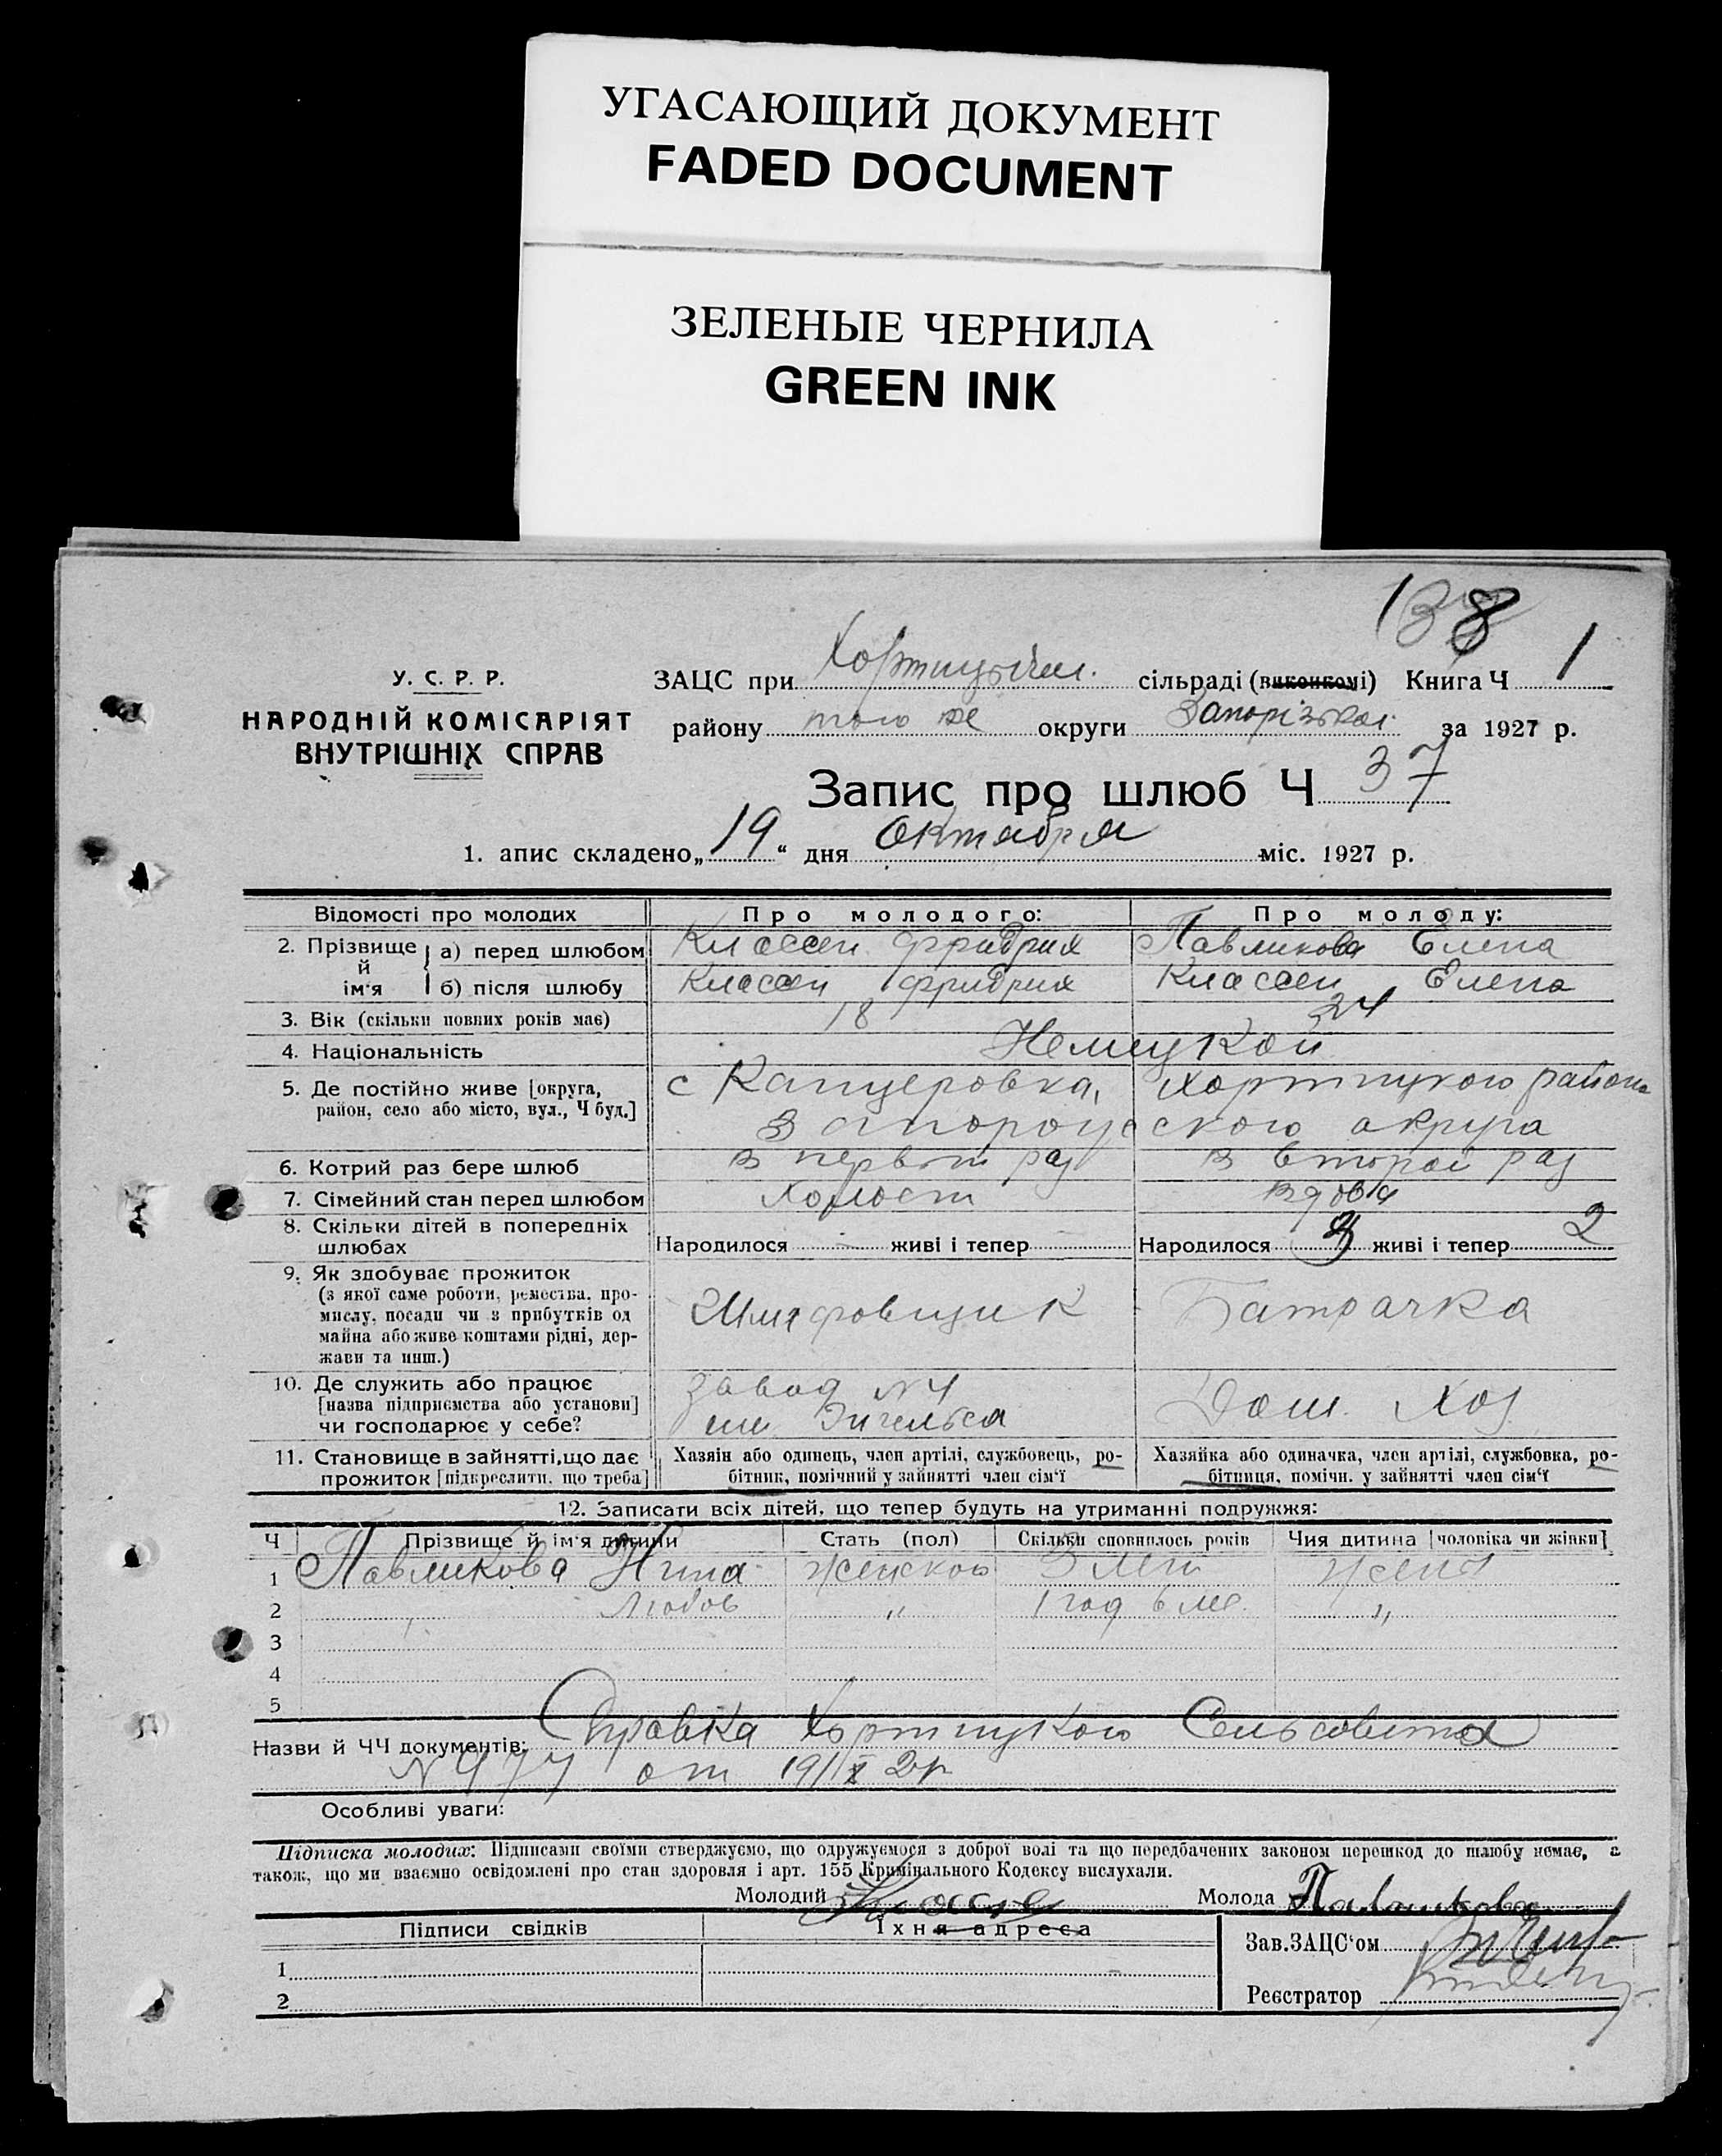 УГАСАЮЩИЙ ДОКУМЕНТ
FADED DOCUMENT
ЗЕЛЕНЫЕ ЧЕРНИЛА
GREEN INK
138
У. С. Р. Р.
НАРОДНІЙ КОМІСАРІЯТ
ВНУТРІШНІХ СПРАВ
ЗАЦС при сільраді (виконкомі) Книга Ч 1
району того же округи Запорізькой за 1927 р.
Запис про шлюб Ч 37
1. апис складено „ 19 “ дня Октября міс. 1927 р.
Відомості про молодих Про молодого: Про молоду:
2. Прізвище й ім'я а) перед шлюбом Классен Фридрих Павликова Елена
б) після шлюбу Классен Фридрих Классен Елена
3. Вік (скільки повних років має) 18 24
4. Національність Немецкой
5. Де постійно живе [округа, с Канцеровка, Хортицкого района
район, село або місто, вул., Ч буд.] округа
6. Котрий раз бере шлюб в первый раз в второй раз
7. Сімейний стан перед шлюбом Холост вдова
8. Скільки дітей в попередніх
шлюбах Народилося - живі і тепер Народилося 3 живі і тепер 2
9. Як здобуває прожиток
(з якої саме роботи, ремества, про-
мислу, посади чи з прибутків од
майна або живе коштами рідні, дер-
жави та инш.)
Шлифовщик Батрачка
10. Де служить або працює завод N 4
[назва підприємства або установи] им. Энгельса Дом. Хоз.
чи господарює у себе?
11. Становище в зайнятті, що дає Хазяїн або одинець, член артілі, службовець, ро- Хазяйка або одиначка, член артілі, службовка, ро-
прожиток [підкреслити, що треба] бітник, помічний у зайнятті член сім'ї бітниця, помічн. у зайнятті член сім'ї
12. Записати всіх дітей, що тепер будуть на утриманні подружжя:
Ч Прізвище й ім'я дитини Стать (пол) Скільки сповнилось років Чия дитина [чоловіка чи жінки]
1 Павликова Нина женской 3 лет жены
2 Любов „ 1 год 6 ме. „
3
4
5
Назви й ЧЧ документів: Справка Хортицкого Сельсовета
от 19/X 27
Особливі уваги:
Підписка молодих: Підписами своїми стверджуємо, що одружуємося з доброї волі та що передбачених законом перешкод до шлюбу немає, а
також, що ми взаємно освідомлені про стан здоровля і арт. 155 Кримінального Кодексу вислухали.
Молодий Молода Павликова
Підписи свідків Їхня адреса
Зав.ЗАЦС'ом
1
2
Реєстратор